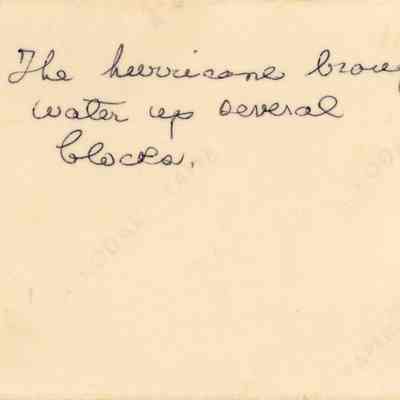 The hurricane broug
water up several
blocks.